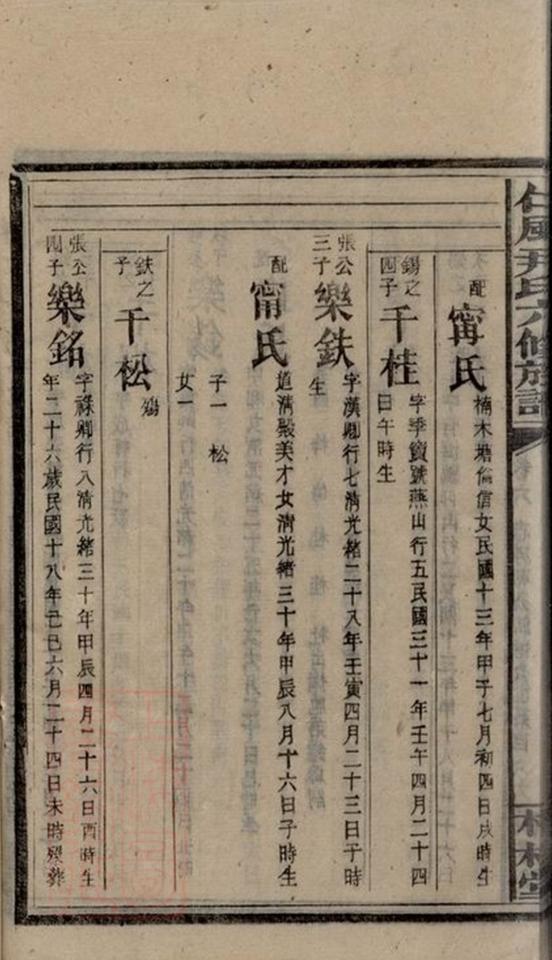 仁風尹氏六修族譜
配
甯氏
楠木塘倫信女民國十三年甲子七月初四日戌時生
錫之
四子
千桂
字季竇號燕山行五民國三十一年壬午四月二十四
日午時生
張公
三子
樂鉄
字漢卿行七清光緒二十八年壬寅四月二十三日子時
生
配
甯氏
道清殿美才女清光緒三十年甲辰八月十六日子時生
子一 松
女一
鉄之
子
千松
殤
張公
四子
樂銘
字祿卿行八清光緒三十年甲辰四月二十六日酉時生
年二十六歲民國十八年己巳六月二十四日未時歿葬